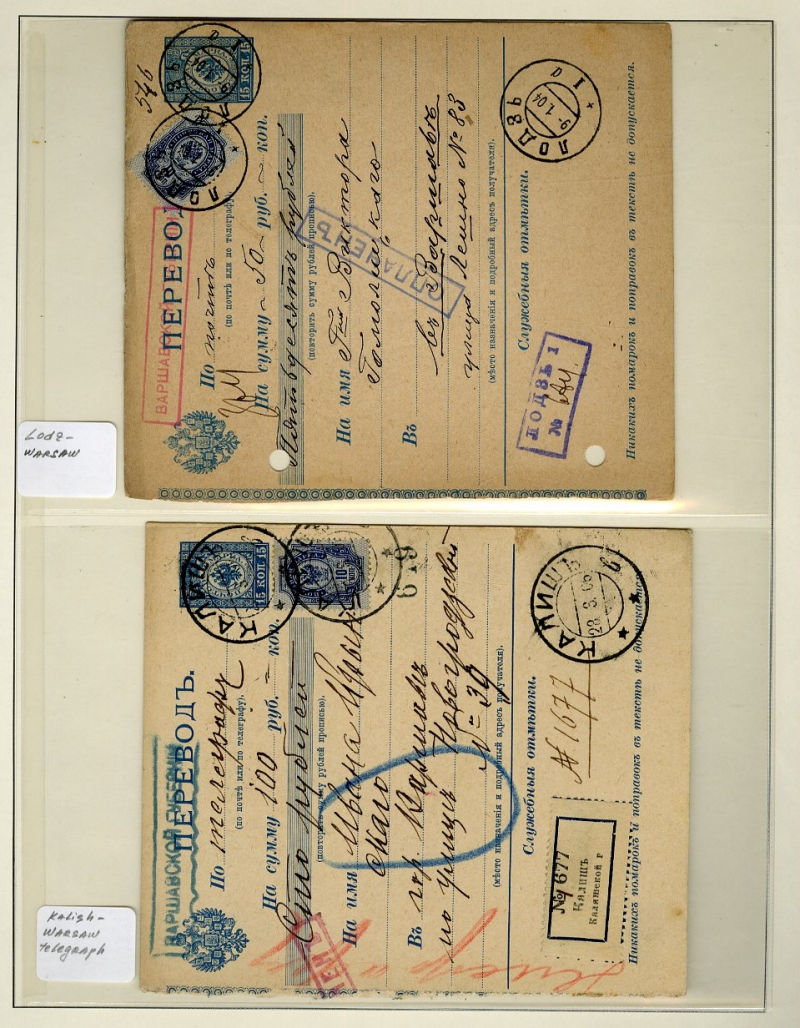 Lodz-
WARSAW
546
15 КОП. 15
ЛОДЗЬ
ЛОДЗЬ
ВАРШАВСКОЙ
ПЕРЕВОД
По почтѣ
(по почтѣ или по телеграфу).
На сумму ~ 50 ~ руб. ~ коп.
Пятьдесятъ рублей
(повторить сумму рублей прописью).
На имя Гна Виктора
Гомолицкаго
Въ въ Варшавѣ
улица Лешно № 83
(мѣсто назначенія и подробный адресъ получателя).
ОПЛАЧЕНЪ
Служебныя отмѣтки.
ЛОДЗЬ
9 1 04
ЛОДЗЬ 1
№
Никакихъ помарокъ и поправокъ въ текстѣ не допускается.
Kalish-
WARSAW
telegraph
15 КОП. 15
КАЛИШЪ
10
6 9
ВАРШАВСКОЙ ГУБЕРНІИ
ПЕРЕВОДЪ.
По телеграфу
(по почтѣ или по телеграфу).
На сумму 100 руб. ~ коп.
Сто рублей
(повторить сумму рублей прописью).
На имя Ивана
скаго
Въ гор. Варшавѣ
по улицѣ Новогродской
№ 39
(мѣсто назначенія и подробный адресъ получателя).
Служебныя отмѣтки.
№ 1677
КАЛИШЪ
№ 1677
Калишъ
Калишской г
Никакихъ помарокъ и поправокъ въ текстѣ не допускается.